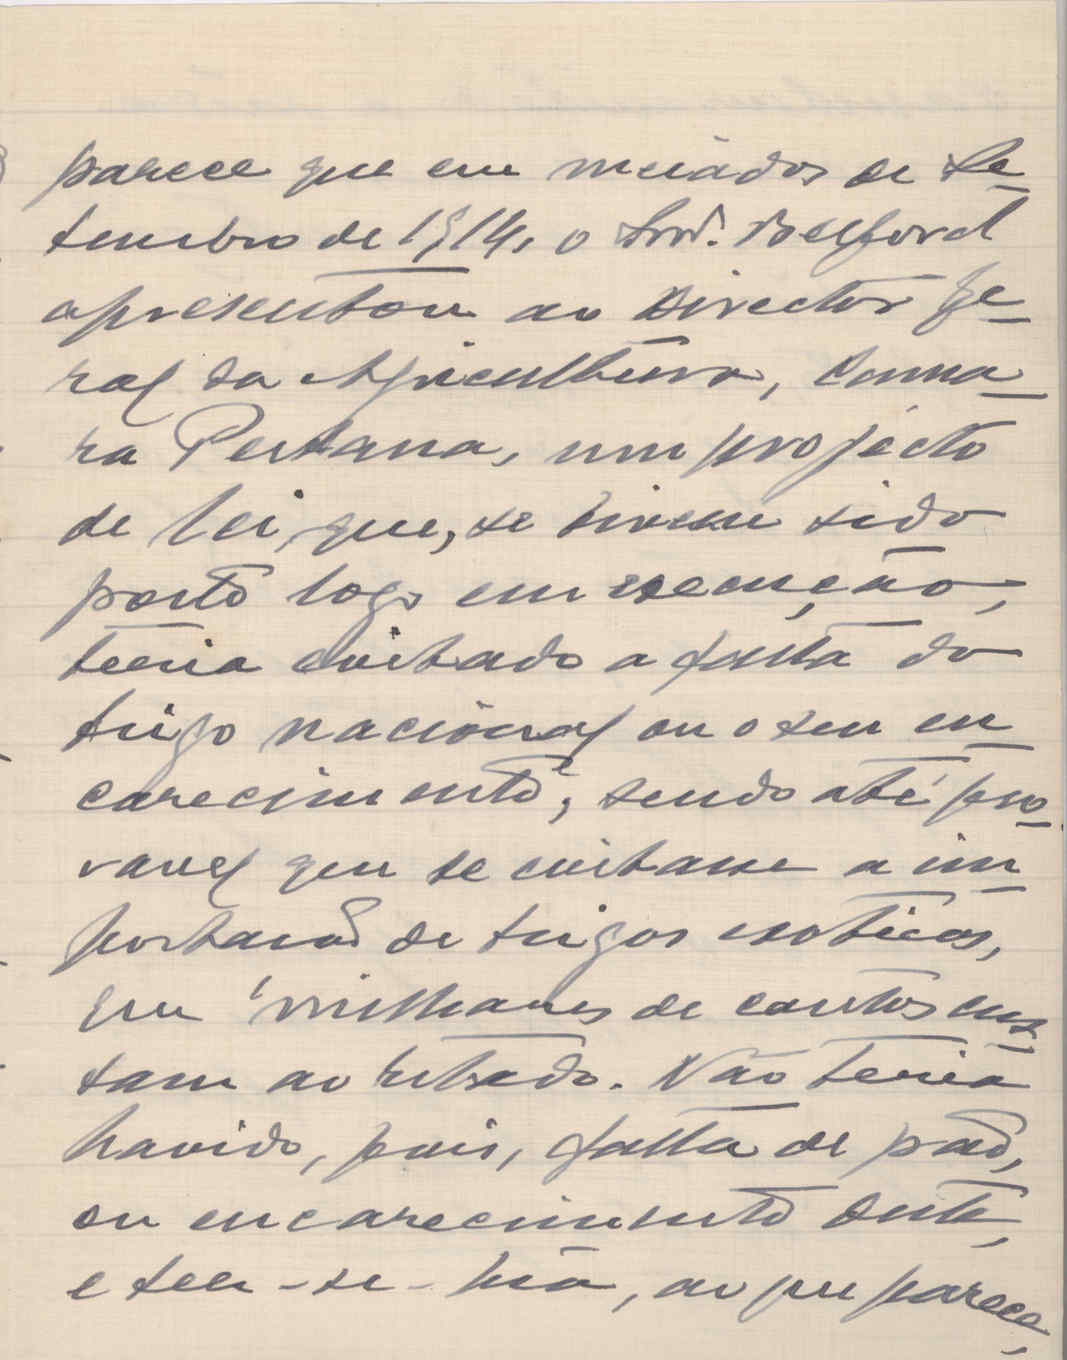 parece que em meiados de Se-
tembro de 1914, o Snr. Belford
apresentou ao Director Ge-
ral da Agricultura, Camma-
ra Pestana, um projecto
de lei, que, se tivesse sido
posto logo em execução,
teria evitado a falta do
trigo nacional ou o seu en-
carecimento, sendo até pro-
vavel que se evitasse a im-
portação de trigos exoticos,
que milhares de contos cus-
tam ao Estado. Não teria
havido, pois, falta de pão,
ou encarecimento deste,
e ter-se-hia, ao que parece,